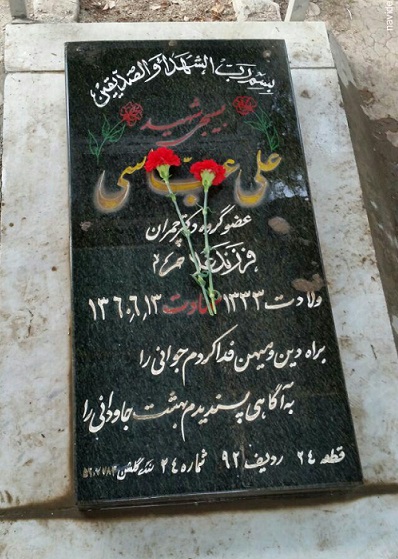 بسم رب الشهدا والصدیقین
بسیجی شهید
علی عباسی
عضو گروه دکتر چمران
فرزند
ولادت ۱۳۳۳ شهادت ۱۳۶۰,۶,۱۳
براه دین و میهن فدا کردم جوانی را
به آگاهی پسندیدم بهشت جاودانی را
قطعه ۲۴ ردیف ۹۲ شماره ۲۴
navide